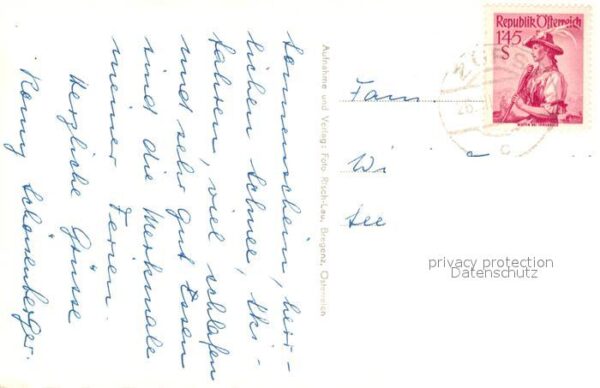 Sonnenschein, herr-
lichen Schnee, Ski-
fahren, viel schlafen
und sehr gut Essen
sind die Merkmale
meiner Ferien.
Herzliche Grüsse
Romy Schönenberger.
Aufnahme und Verlag: Foto Risch-Lau, Bregenz, Österreich
Republik Österreich
1'45
S
ZÜRS
26.
c
Fam
Wi
See
privacy protection
Datenschutz